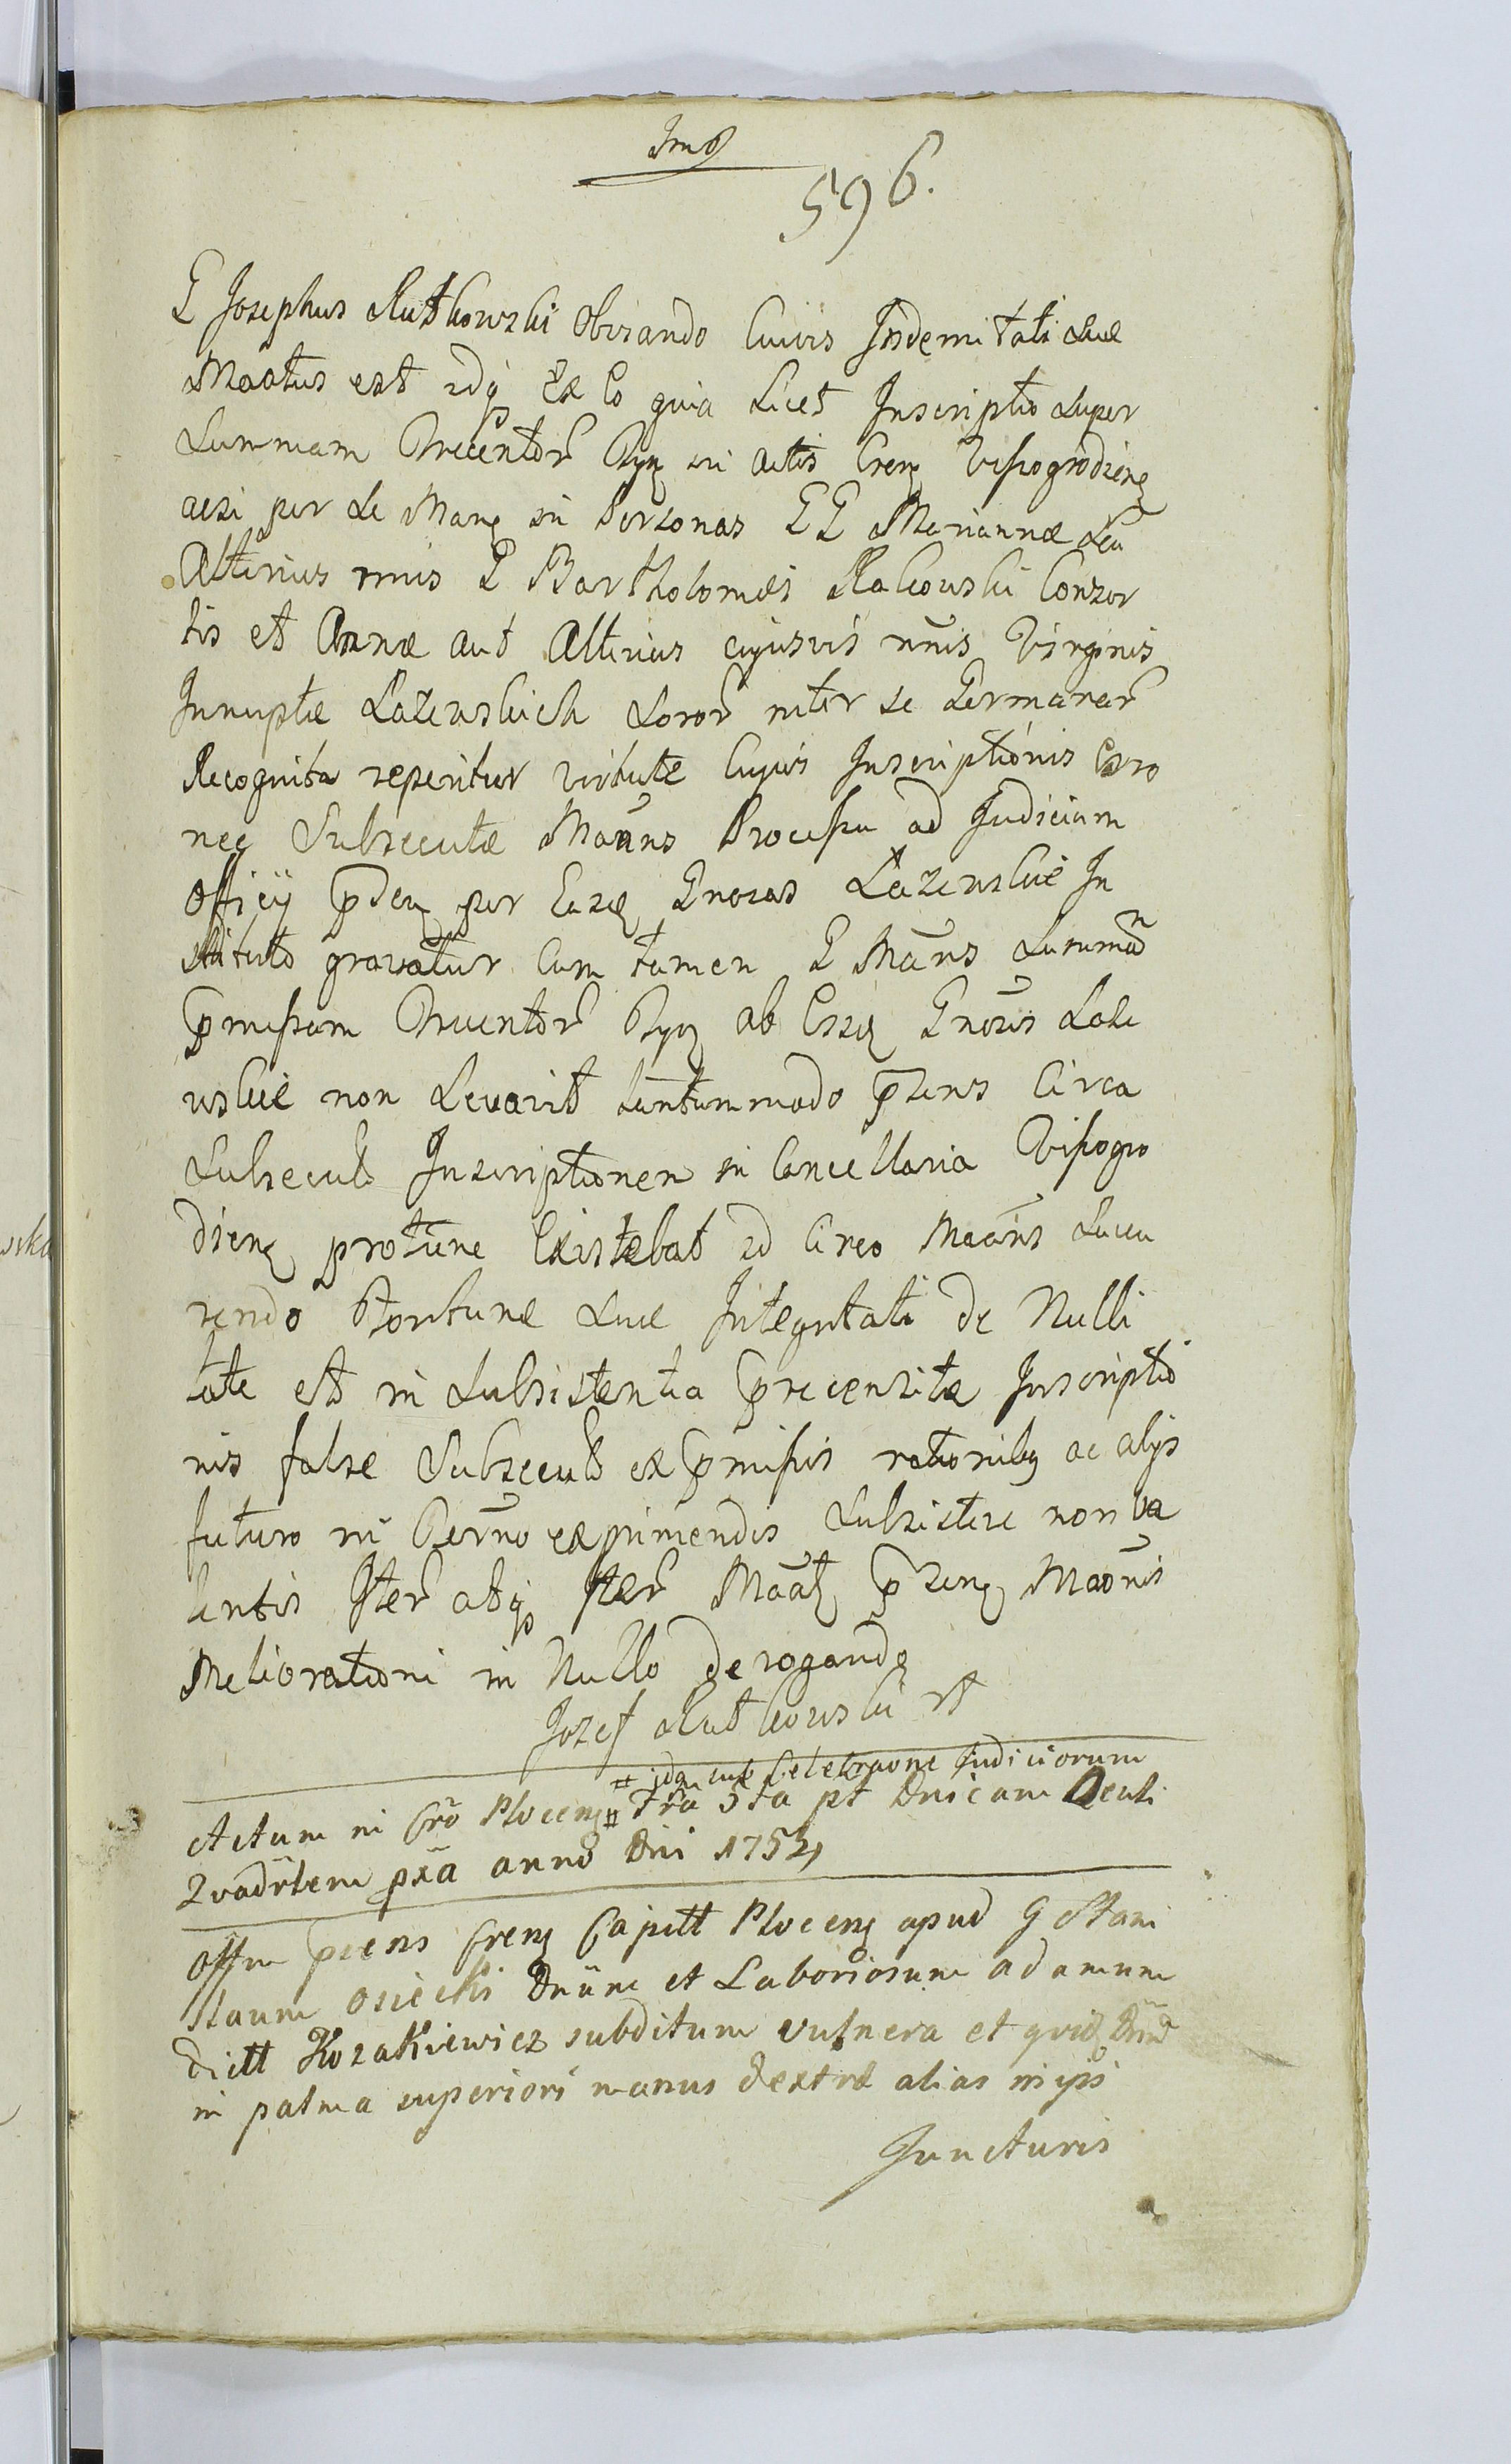 Imo
596.
G Josephus Rutkowski Obviando Cuivis Indemitati suæ
Maatus est idq Ex Eo quia Licet Inscriptio super
summam Trecentor in actis Creng Visogrodieng
acsi per se Mang in Personas GG Mariannæ seu
Alterius nnis G Bartholomæi Rakowski Consor
tis et Annæ aut Alterius cujusvis nnis Virginis
Innuptæ Lazewskich soror inter se Germanar
Recognita reperitur virtute Cujus Inscriptionis erro
nee Subsecutæ Maans Processu ad Judicium
Officy per Easq Gnosas Lazewskie In
stituto gravatur Cum tamen G Mans summam
pmissam Trecentor ab Eisq Gnosis Laze
wskie non Levavit tantummodo pzens Circa
subsecut Inscriptionem in Cancellaria Visogro
dieng protunc Existebat id Circo Maans succu
rendo Fortunæ suæ Integritati de Nulli
tate et in subsistentia precensitæ Inscriptio
nis false Subsecut ex pmissis rationibq ac alys
futuro in exprimendis subsistere non va
lentis Iter atq Iter Maat pzeng Maonis
Meliorationi in Nullo derogando
Jozef Rutkowski
# idq sub Celebraone Judiciorum
Actum in Cro Ploceng # Fra 5ta pt Dnicam Oculi
Quadrlem pxa anno Dni 1752
Offm pcens Creng Capitt Ploceng apud G Stani
slaum Osiecki Dnum et Laboriosum Adamum
dictt Kozakiewicz subditum vulnera et qvid
in palma superiori manus dextræ alias in ipsi
Juncturis